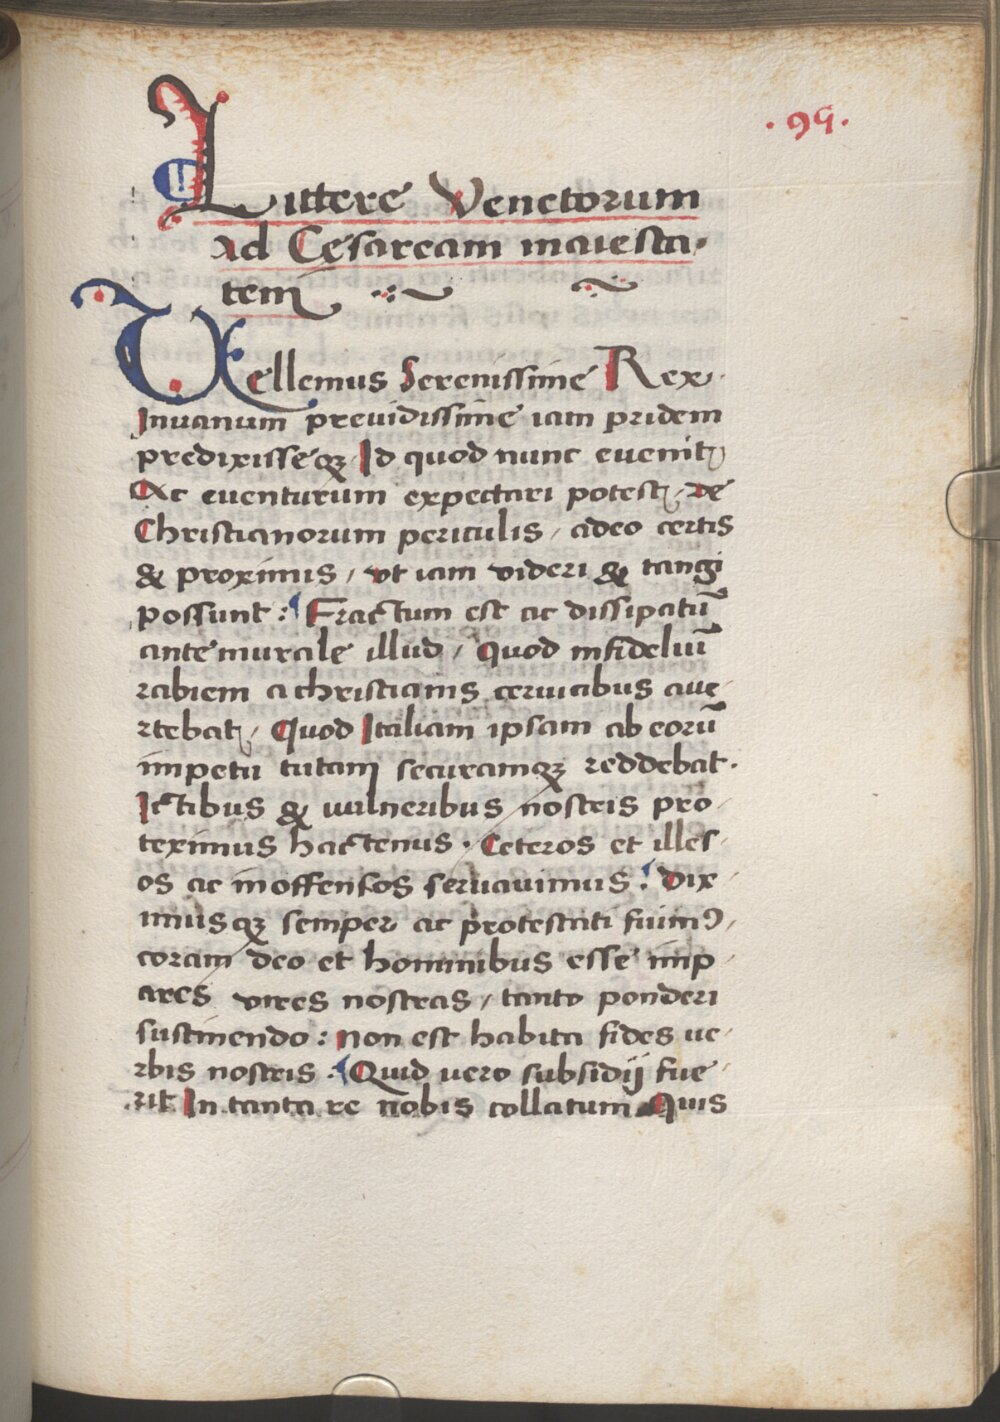 .99.
Littere Venetorum
Ad Cesaream maiesta-
tem
Vellemus Serenissime Rex
Inuanum preuidissime iam pridem
predixisseqꝫ Id quod nunc euenit
Ac euenturum expectari potest, de
Christianorum periculis, adeo certis
& proximis, vt iam videri & tangi
possunt: Fractum est ac dissipatū
ante murale illud, Quod infideliū
rabiem a christianis ceruicibus aue-
rtebat, Quod Italiam ipsam ab eorū
impetu tutam securamqꝫ reddebat.
Ictibus & uulneribus nostris pro-
teximus hactenus. Ceteros et illes-
os ac inoffensos seruauimus: Dix-
imusqꝫ semper ac protestati fuimꝰ,
coram deo et hominibus esse imp-
ares vires nostras, tanto ponderi
sustinendo: non est habita fides ue-
rbis nostris: Quid uero subsidij fue-
rit In tanta re nobis collatum Quis